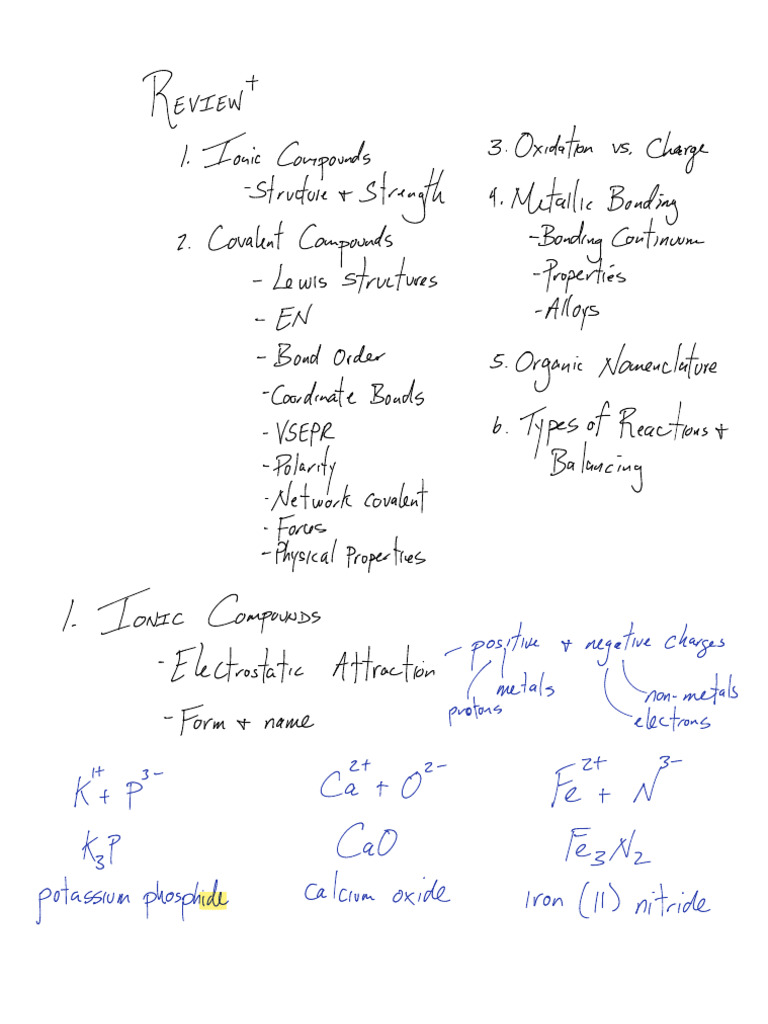 REVIEW+
1. Ionic Compounds
-Structure + Strength
2. Covalent Compounds
- Lewis Structures
- EN
- Bond Order
-Coordinate Bonds
-VSEPR
-Polarity
-Network covalent
- Forces
-Physical Properties
3. Oxidation vs. Charge
4. Metallic Bonding
-Bonding Continuum
-Properties
-Alloys
5. Organic Nomenclature
6. Types of Reactions +
Balancing
1. IONIC COMPOUNDS
- Electrostatic Attraction - positive + negative charges
protons metals non-metals
electrons
- Form + name
K¹⁺ + P³⁻ Ca²⁺ + O²⁻ Fe²⁺ + N³⁻
K₃P CaO Fe₃N₂
potassium phosphide calcium oxide iron (II) nitride